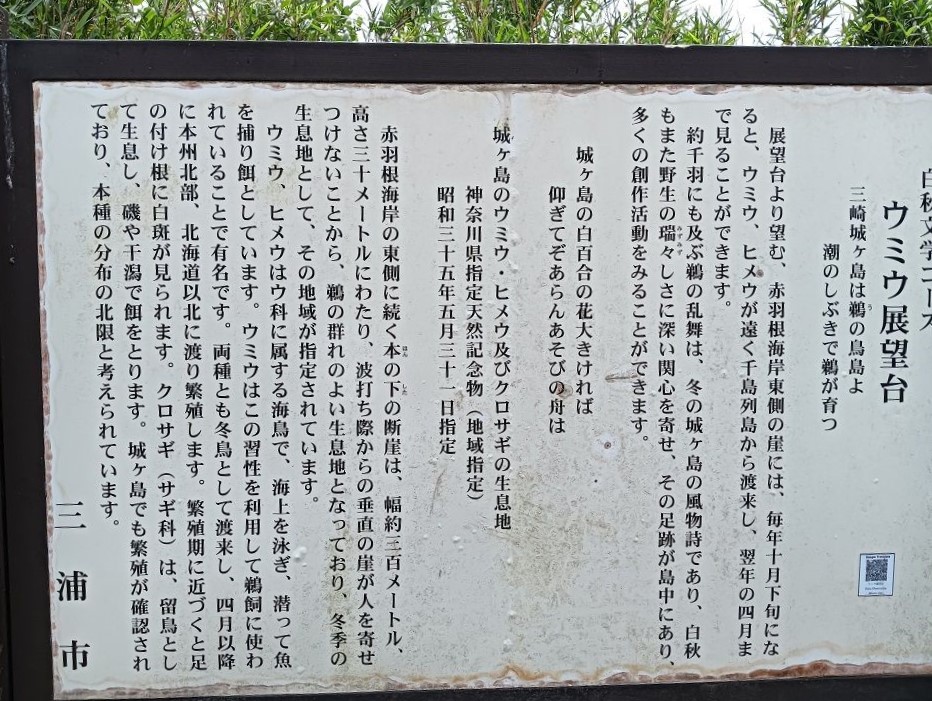 白秋文学コース
ウミウ展望台
三崎城ヶ島は鵜の鳥島よ
潮のしぶきで鵜が育つ
展望台より望む、赤羽根海岸東側の崖には、毎年十月下旬にな
ると、ウミウ、ヒメウが遠く千島列島から渡来し、翌年の四月ま
で見ることができます。
約千羽にも及ぶ鵜の乱舞は、冬の城ヶ島の風物詩であり、白秋
もまた野生の瑞々しさに深い関心を寄せ、その足跡が島中にあり、
多くの創作活動をみることができます。
城ヶ島の白百合の花大きければ
仰ぎてぞあらんあそびの舟は
城ヶ島のウミウ・ヒメウ及びクロサギの生息地
神奈川県指定天然記念物(地域指定)
昭和三十五年五月三十一日指定
赤羽根海岸の東側に続く本の下の断崖は、幅約三百メートル、
高さ三十メートルにわたり、波打ち際からの垂直の崖が人を寄せ
つけないことから、鵜の群れのよい生息地となっており、冬季の
生息地として、その地域が指定されています。
ウミウ、ヒメウはウ科に属する海鳥で、海上を泳ぎ、潜って魚
を捕り餌としています。ウミウはこの習性を利用して鵜飼に使わ
れていることで有名です。両種とも冬鳥として渡来し、四月以降
に本州北部、北海道以北に渡り繁殖します。繁殖期に近づくと足
の付け根に白斑が見られます。クロサギ(サギ科)は、留鳥とし
て生息し、磯や干潟で餌をとります。城ヶ島でも繁殖が確認され
ており、本種の分布の北限と考えられています。
三浦市